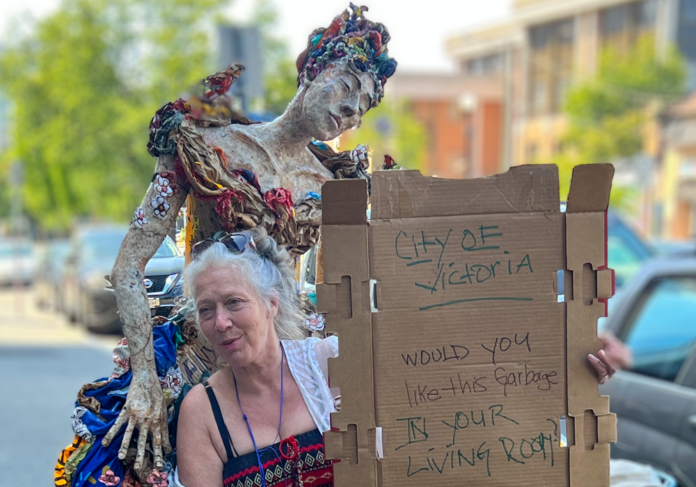 CITY OF
VICTORIA
WOULD YOU
like this Garbage
IN YOUR
LIVING ROOM?